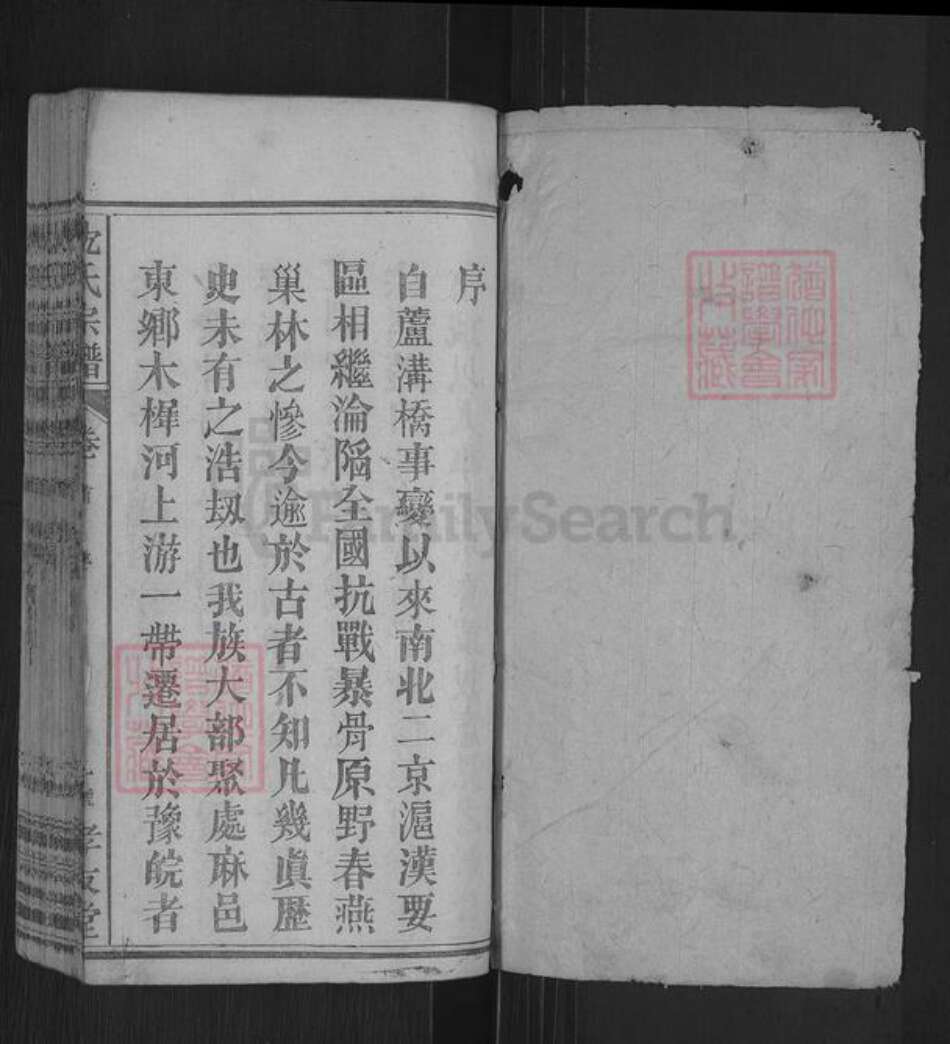 序
自蘆溝橋事變以來南北二京滬漢要
區相繼淪陷全國抗戰暴骨原野春燕
巢林之慘今逾於古者不知凡幾眞歷
史未有之浩刼也我族大部聚處麻邑
東鄉木樨河上游一帶遷居於豫皖者
氏宗譜
卷首
序
孝友堂
FamilySearch